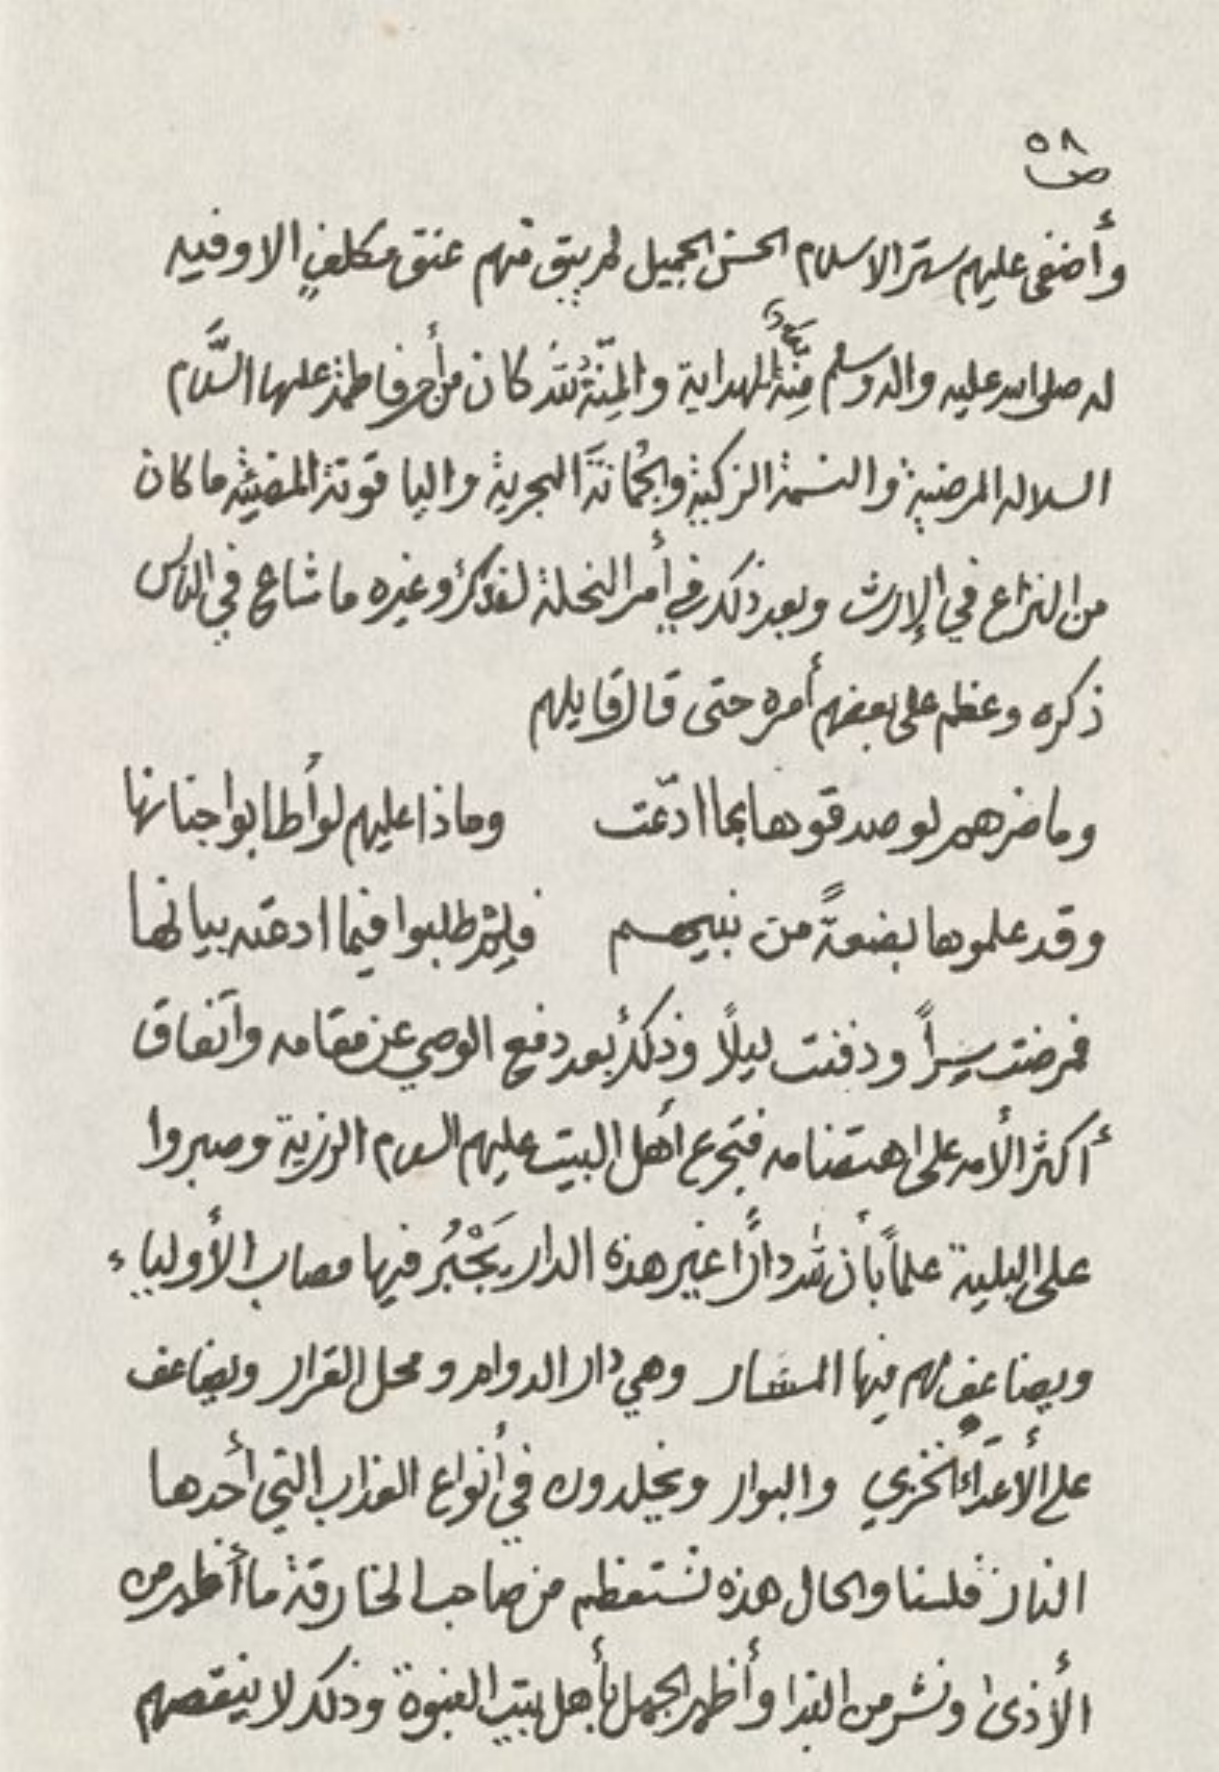 ٥٨
ص
وأضفى عليهم ستر الاسلام الحسن الجميل لم يبق منهم عنق مكلفٍ الا وفيه
له صلى الله عليه واله وسلم مِنّة الهداية والمِنّةُ لله كان من أمر فاطمة عليها السَّلام
السلاله المرضية والنسمة الزكية والجُمانةَ البحرية والياقوتة المضيئة ما كان
من النزاع في الإرث وبعد ذلك في أمر النحلة لفدك وغيره ما شاع في الناس
ذكره وعظم على بعضهم أمره حتى قال قايلهم
وما ضرهم لو صدقوها بما ادّعت وماذا عليهم لو أطابوا جنانها
وقد علموها بضعةً من نبيهم فلِمْ طلبوا فيما ادعته بيانها
فمرضت سِراً ودفنت ليلًا وذلك بعد دفع الوصي عن مقامه واتفاق
أكثر الأمه على اهتضامه فتجرع أهل البيت عليهم السلام الرزية وصبروا
على البلية علماً بأن لله داراً غير هذه الدار يَجْبُر فيها مصاب الأولياء
ويضاعف لهم فيها المسار وهي دار الدوام ومحل القرار ويضاعف
على الأعداء الخزي والبوار ويخلدون في أنواع العذاب التي أحدها
النار فلسنا والحال هذه نستعظم من صاحب الخارقة ما أظهر من
الأذى ونشر من البذا وأظهر الجهل بأهل بيت النبوة وذلك لا ينقصهم